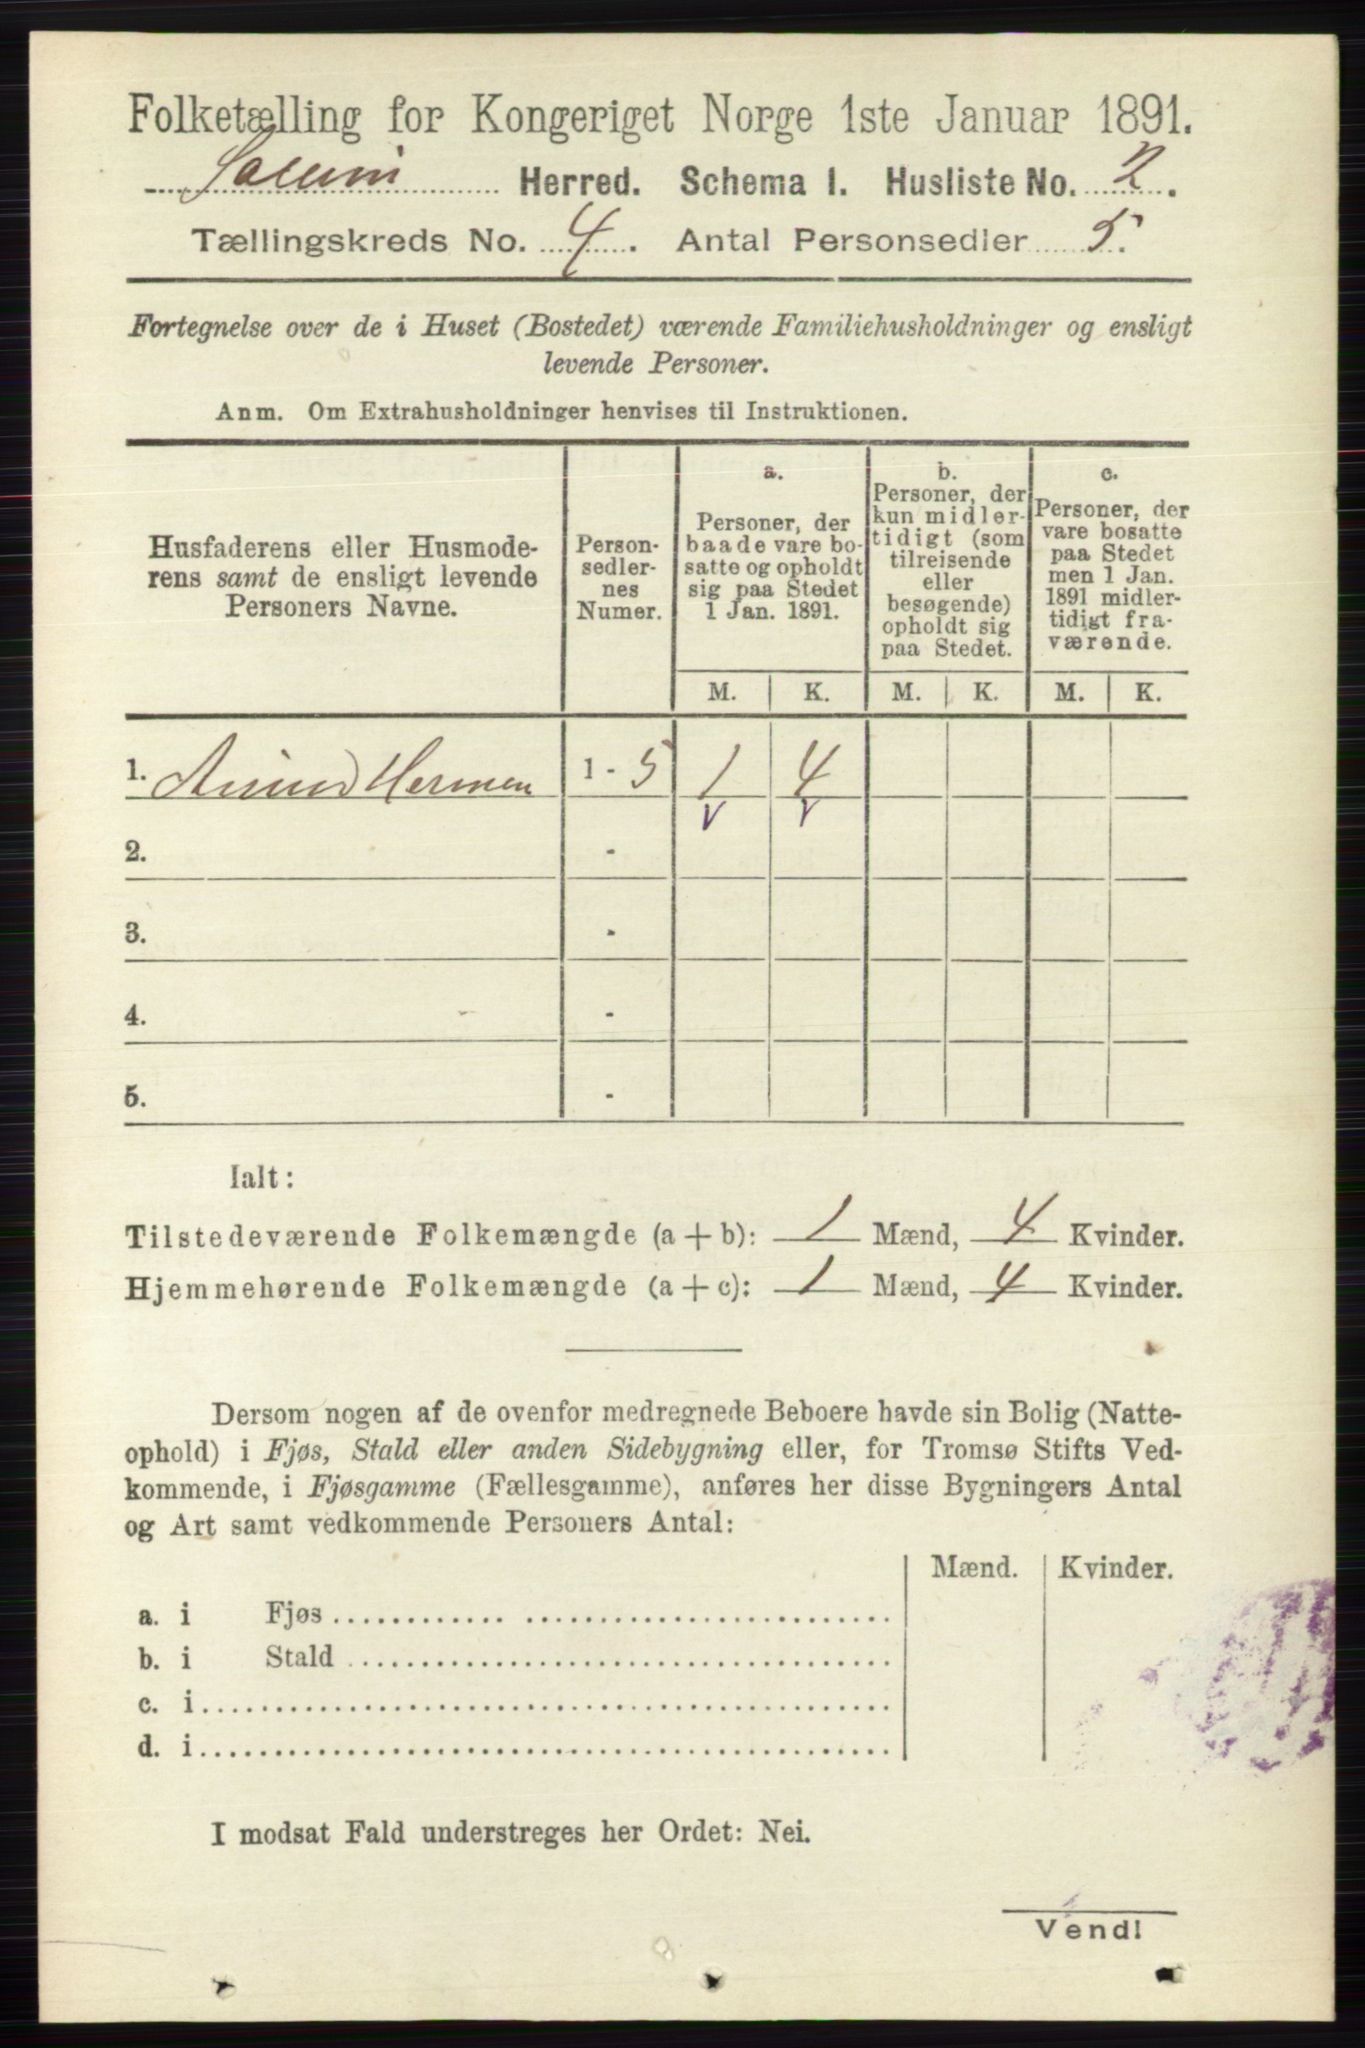 Folketælling for Kongeriget Norge 1ste Januar 1891.
Solum Herred. Schema I. Husliste No. 2.
Tællingskreds No. 4. Antal Personsedler 5.
Fortegnelse over de i Huset (Bostedet) værende Familiehusholdninger og ensligt
levende Personer.
Anm. Om Extrahusholdninger henvises til Instruktionen.
Husfaderens eller Husmode-
rens samt de ensligt levende
Personers Navne.
Person-
sedler-
nes
Numer.
a.
Personer, der
baade vare bo-
satte og opholdt
sig paa Stedet
1 Jan. 1891.
b.
Personer, der
kun midler-
tidigt (som
tilreisende
eller
besøgende)
opholdt sig
paa Stedet.
c.
Personer, der
vare bosatte
paa Stedet
men 1 Jan.
1891 midler-
tidigt fra-
værende.
M. K. M. K. M. K.
1. Herman 1 - 5 1 4
2. -
3. -
4. -
5. -
Ialt:
Tilstedeværende Folkemængde (a + b): 1 Mænd, 4 Kvinder.
Hjemmehørende Folkemængde (a + c): 1 Mænd, 4 Kvinder.
Dersom nogen af de ovenfor medregnede Beboere havde sin Bolig (Natte-
ophold) i Fjøs, Stald eller anden Sidebygning eller, for Tromsø Stifts Ved-
kommende, i Fjøsgamme (Fællesgamme), anføres her disse Bygningers Antal
og Art samt vedkommende Personers Antal:
Mænd. Kvinder.
a. i Fjøs
b. i Stald
c. i
d. i
I modsat Fald understreges her Ordet: Nei.
Vend!